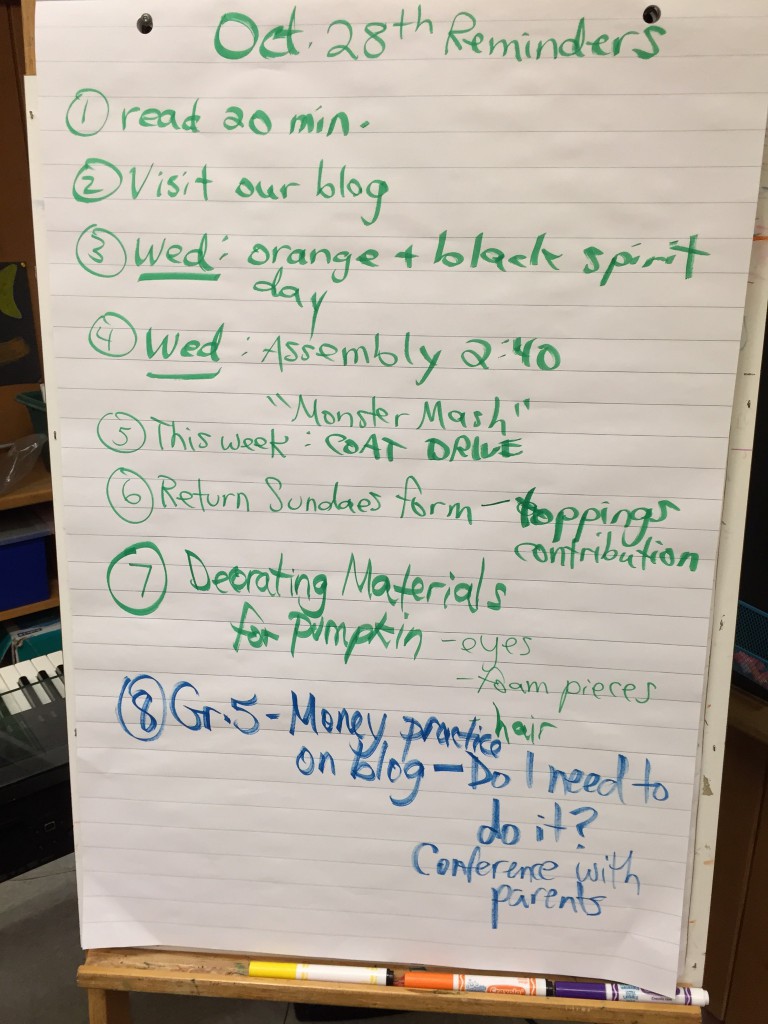 Oct. 28th Reminders
① read 20 min.
② Visit our blog
③ Wed: orange + black spirit
day
④ Wed: Assembly 2:40
"Monster Mash"
⑤ This week: COAT DRIVE
⑥ Return Sundaes form - toppings
contribution
⑦ Decorating Materials
for Pumpkin - eyes
- foam pieces
hair
⑧ Gr.5 - Money practice
on blog - Do I need to
do it?
Conference with
parents